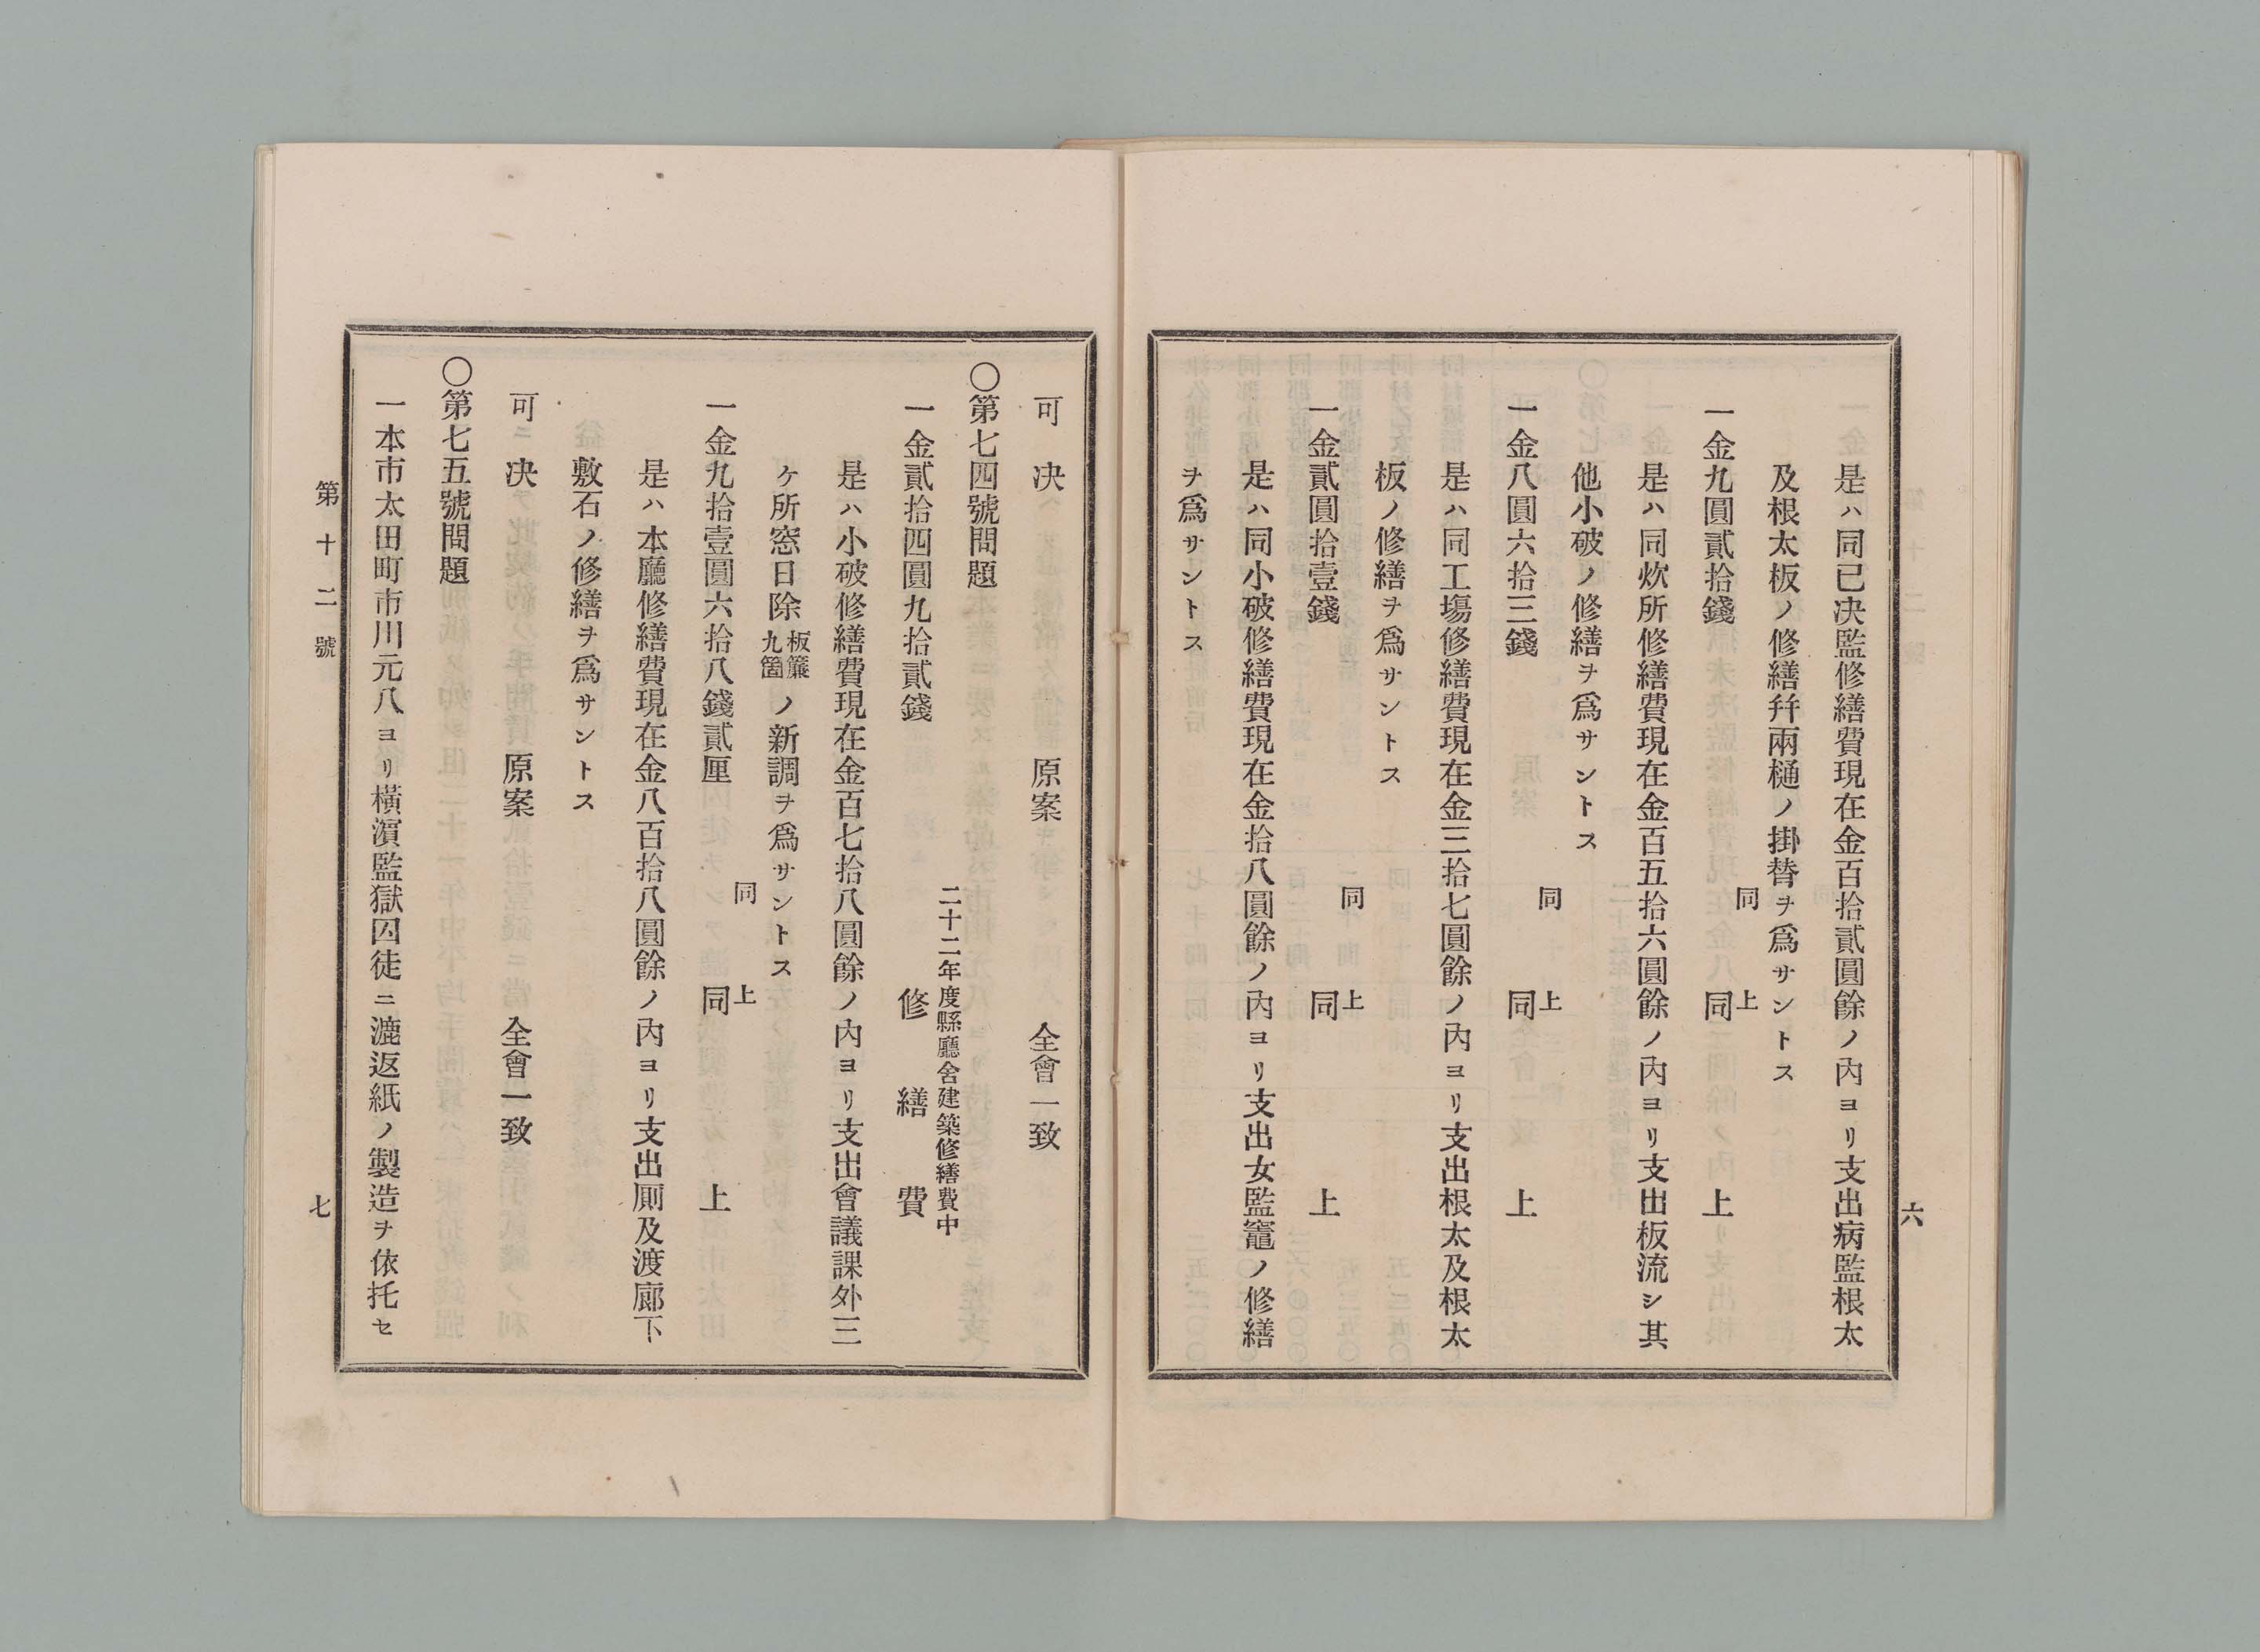 是ハ同已决監修繕費現在金百拾貳圓餘ノ內ヨリ支出病監根太
及根太板ノ修繕幷兩樋ノ掛替ヲ爲サントス
同上
一金九圓貳拾錢 同上
是ハ同炊所修繕費現在金百五拾六圓餘ノ內ヨリ支出板流シ其
他小破ノ修繕ヲ爲サントス
同上
一金八圓六拾三錢 同上
是ハ同工塲修繕費現在金三拾七圓餘ノ內ヨリ支出根太及根太
板ノ修繕ヲ爲サントス
同上
一金貳圓拾壹錢 同上
是ハ同小破修繕費現在金拾八圓餘ノ內ヨリ支出女監竈ノ修繕
ヲ爲サントス
六
可决 原案 全會一致
〇第七四號問題
二十二年度縣廳舍建築修繕費中
一金貳拾四圓九拾貳錢 修繕費
是ハ小破修繕費現在金百七拾八圓餘ノ內ヨリ支出會議課外三
ケ所窓日除板簾九箇ノ新調ヲ爲サントス
同上
一金九拾壹圓六拾八錢貳厘 同上
是ハ本廳修繕費現在金八百拾八圓餘ノ內ヨリ支出厠及渡廊下
敷石ノ修繕ヲ爲サントス
可决 原案 全會一致
〇第七五號問題
一本市太田町市川元八ヨリ橫濵監獄囚徒ニ漉返紙ノ製造ヲ依托セ
第十二號
七